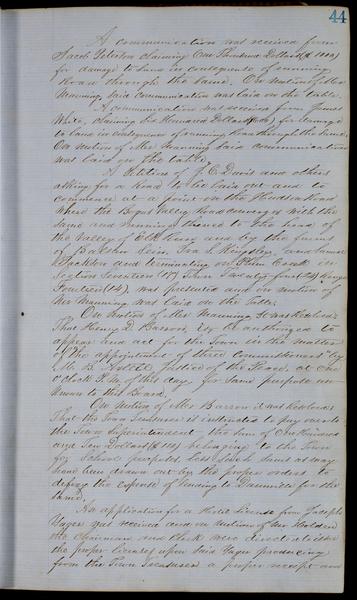 44
A communication was received from
Jacob claiming One Thousand Dollars
for damage to land in consequence of running
Road through the same. On motion of Mr
Manning, said communication was laid on the table.
A communication was received from James
White, claiming Six Hundred Dollars for damage
to land in consequence of running Road through the same.
On motion of Mr Manning said communication
was laid on the table.
A Petition of J. C. Davis and others
asking for a Road to be laid out and to
commence at a point on the Hudson Road
where the Bogus Valley Road converges with the
same and running thence to the head of
the Valley of and to the farms
of
and terminating on
Section Seventeen (17) Town Twenty four (24) Range
Fourteen (14), was presented and on motion of
Mr Manning was laid on the Table.
On motion of Mr Manning it was Resolved
That Henry D. Barron, Esq be authorized to
appear and act for the Town in the matter
of "the appointment of three Commissioners" by
M. B. Justice of the Peace, at one
o'clock P.M. of this day, for some purpose un-
known to this Board.
On motion of Mr Barron it was Resolved
That the Town Treasurer is instructed to pay over to
the Town Superintendent the sum of One Hundred
and Ten Dollars ($110) belonging to the Town
for School purposes, less such sums as may
have been drawn out by the proper orders to
defray the expense of sending to for the
same.
An application for a License from Joseph
Yager was received and on motion of Mr
the Chairman and Clerk were directed to issue
the proper license upon said Yager producing
from the Town Treasurer a proper receipt and